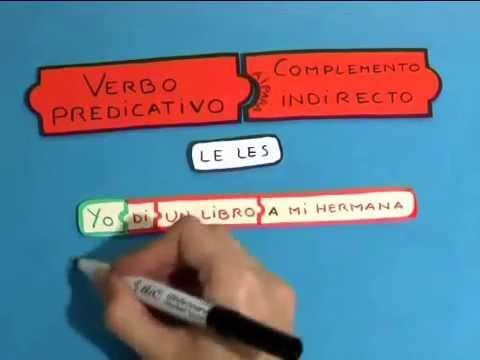 VERBO
PREDICATIVO
COMPLEMENTO
INDIRECTO
A/PARA
LE LES
YO DI UN LIBRO A MI HERMANA
BIC